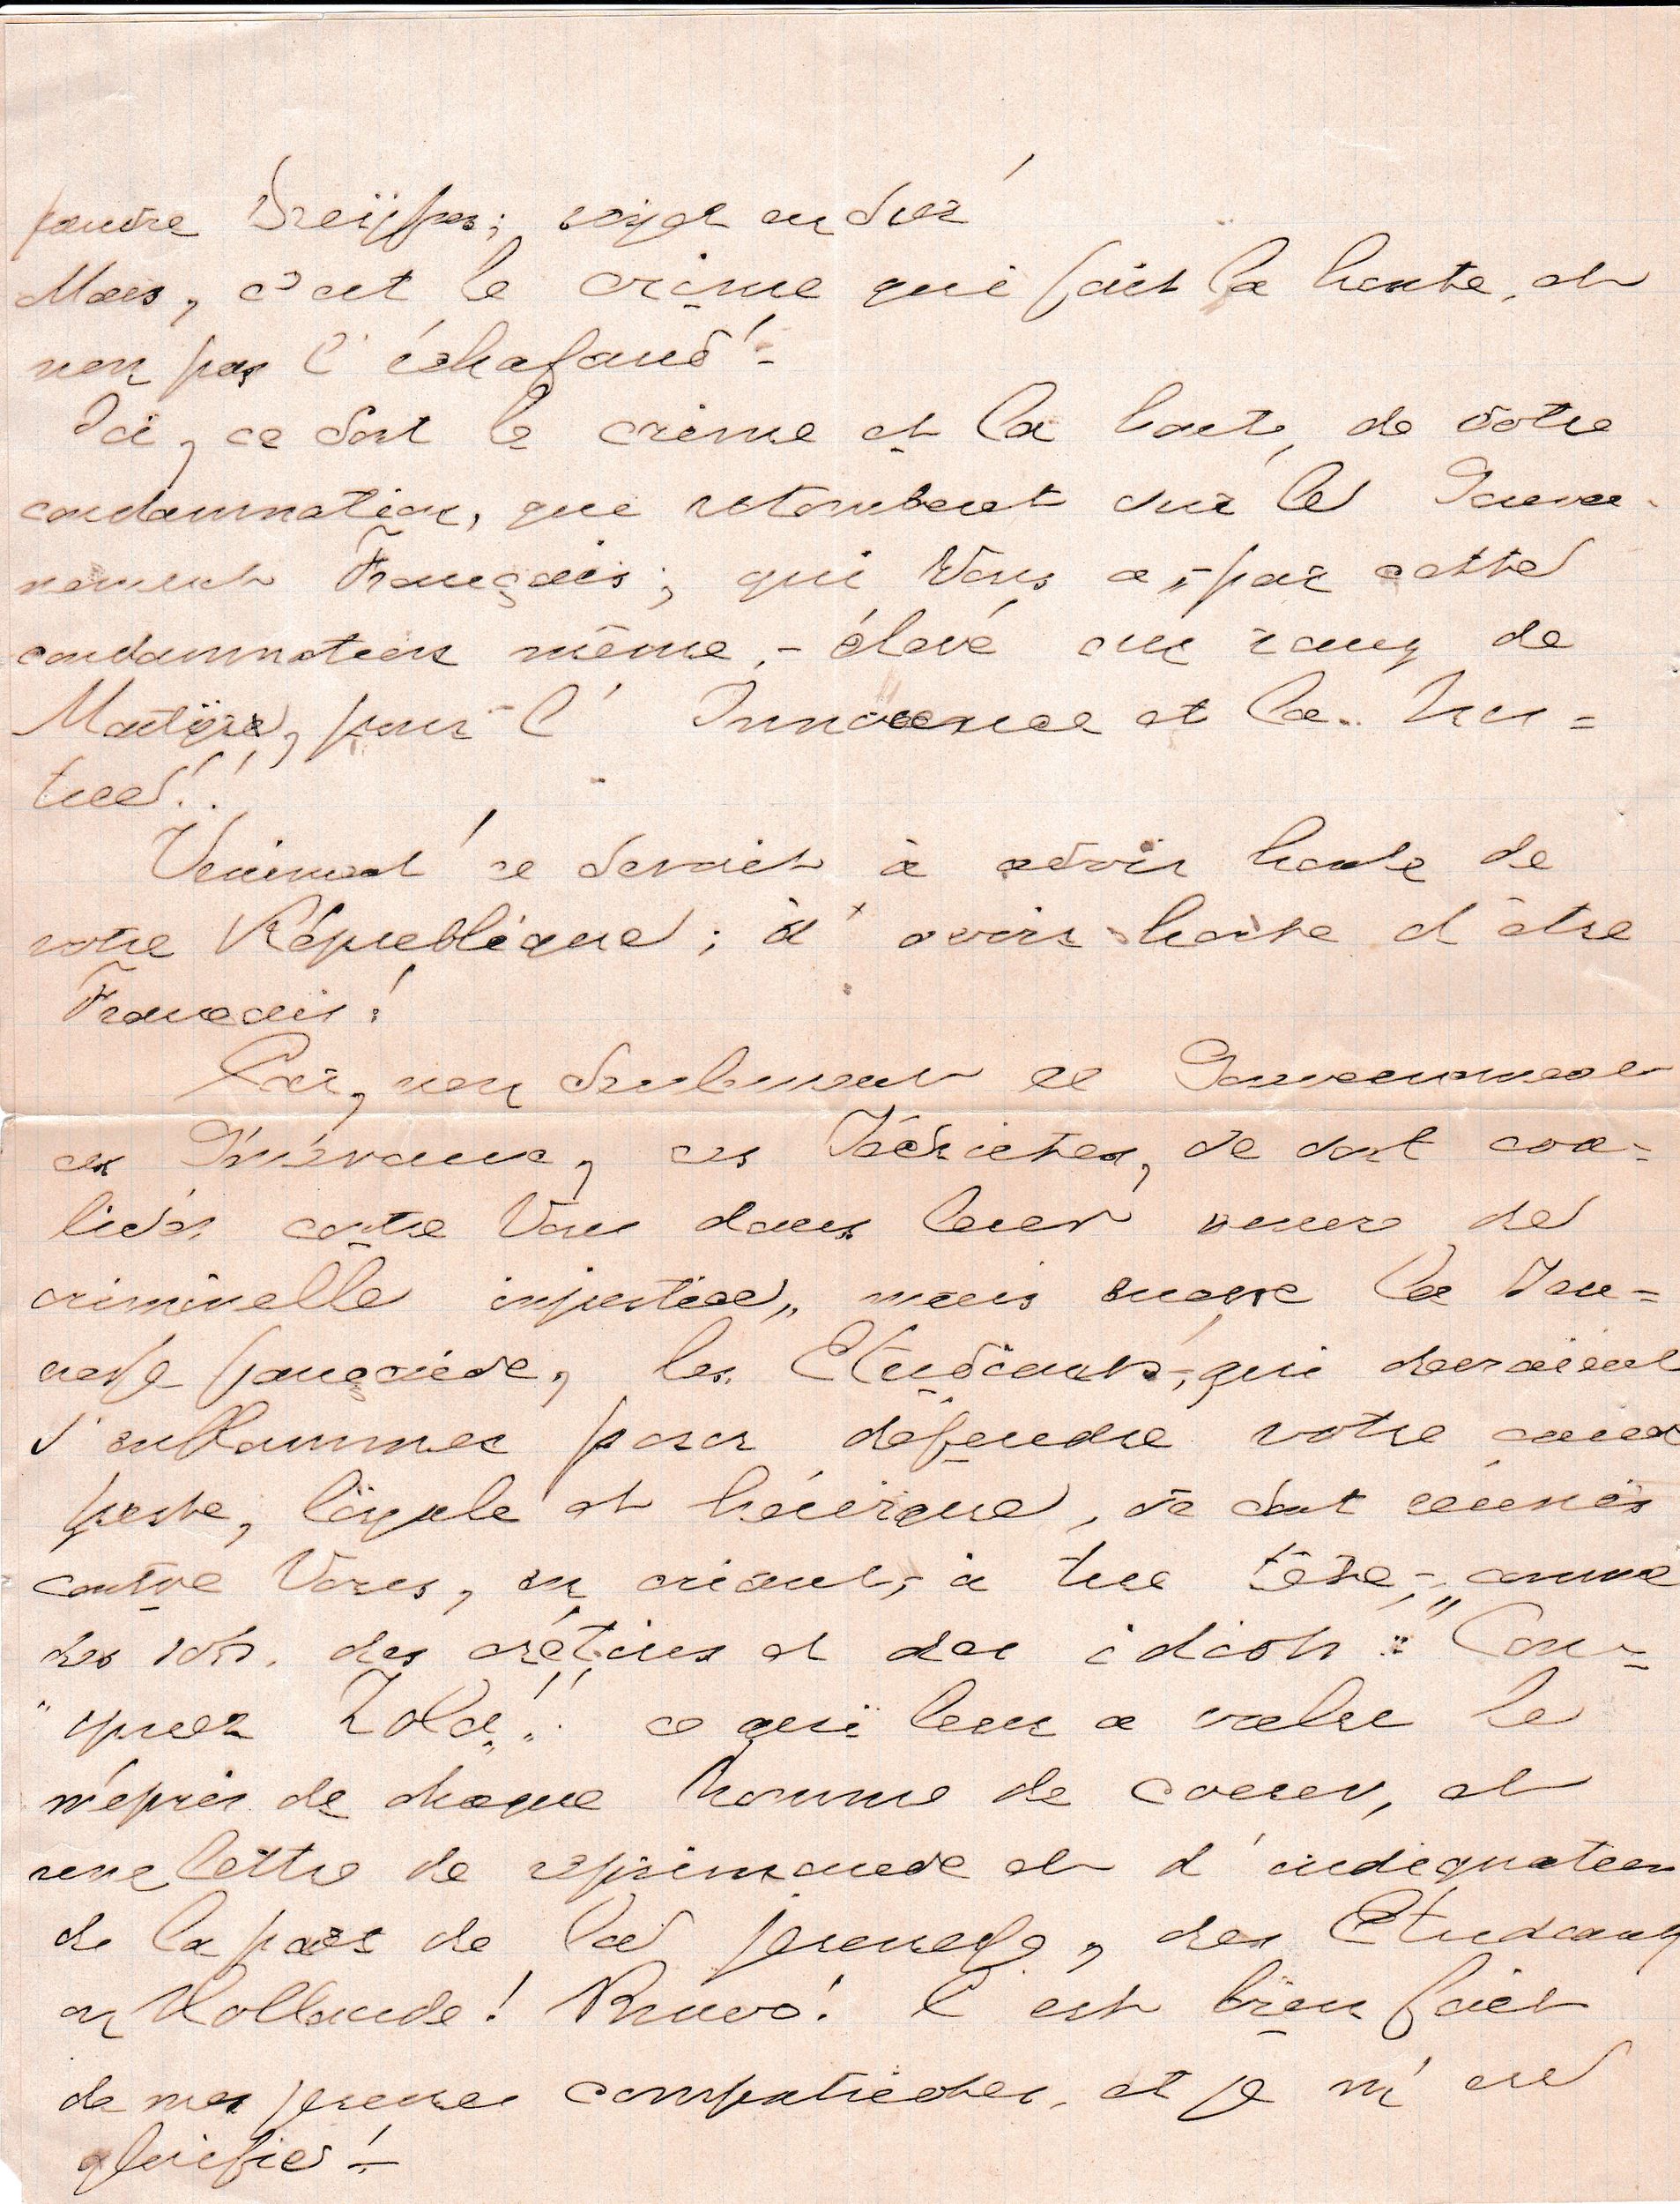 pauvre Dreÿfus; soyez en sûr!
Mais, c'est le crime qui fait la honte, et
non pas l'échafaud! -
Ici, ce sont le crime et la honte, de votre
condamnation, qui retombent sur le Gouver-
nement Français; qui Vous a, - par cette
condamnation même, - élevé au rang de
Martÿre, pour l'Innocence et la Ver=
tue!!
Vraiment! ce serait à avoir honte de
votre République; à avoir honte d'être
Français!
Car, non seulement ce Gouvernement
ces Généraux, ces Jésuites, se sont coa=
lisés contre Vous dans leur œuvre de
criminelle injustice, mais encore la Jeu=
nesse française, les Etudiants, qui devraient
s'enflammer pour défendre votre cause
juste, loÿale et héroïque, se sont réunis
contre Vous, en criant, - à tue tête, - comme
des sots, des crétins et des idiots: "Cons-
"puez Zola!!" ce qui leur a valu le
mépris de chaque homme de coeur, et
une lettre de réprimande et d'indignation
de la part de la jeunesse, des Etudiants
en Hollande! Bravo! C'est bien fait
de mes jeunes compatriotes, et je m'en
glorifie! -